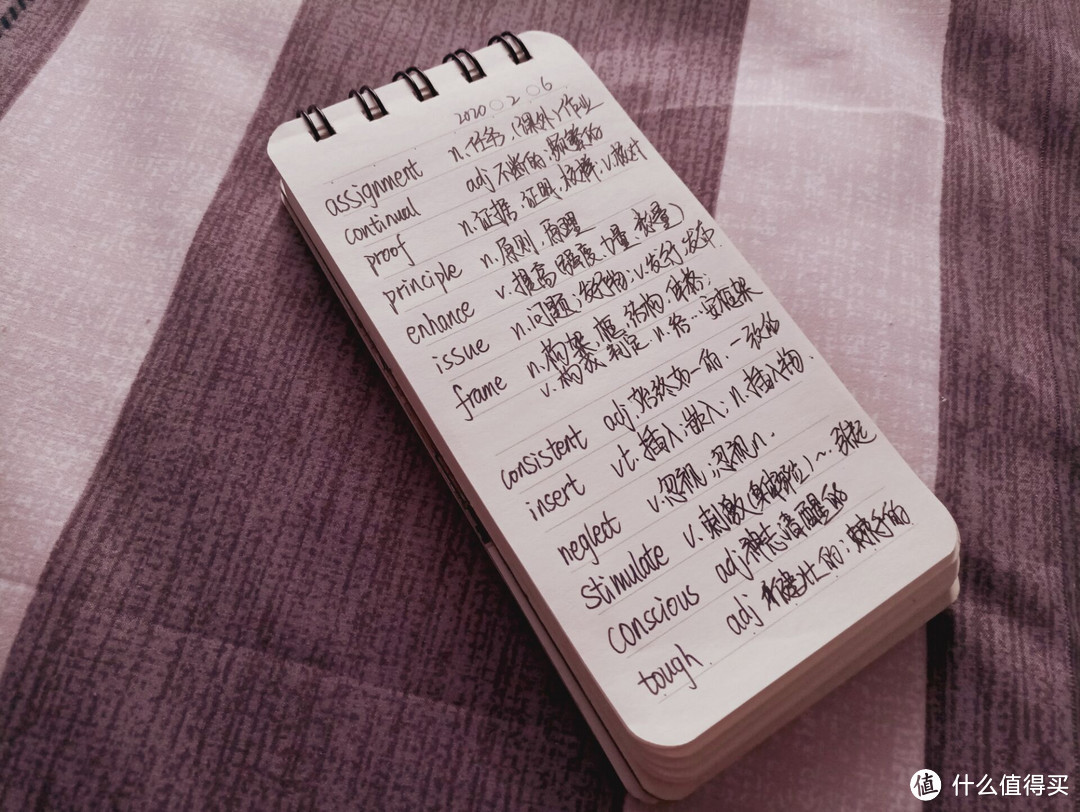 2020 2 06
assignment n.任务,(课外)作业
continual adj 不断的,频繁的
proof n.证据,证明,校样;v.校对
principle n.原则,原理
enhance v.提高(强度,力量,数量)
issue n.问题;发行物;v.发行,发布.
frame n.构架,框,结构,体格;
v.构羙,制定 n.给…安框架
consistent adj.始终如一的,一致的
insert vt.插入;嵌入;n.插入物.
neglect v.忽视;忽视n.
stimulate v.刺激(身体部位)~.引起
conscious adj 神志清醒的
tough adj 健壮的;棘手的
值 什么值得买